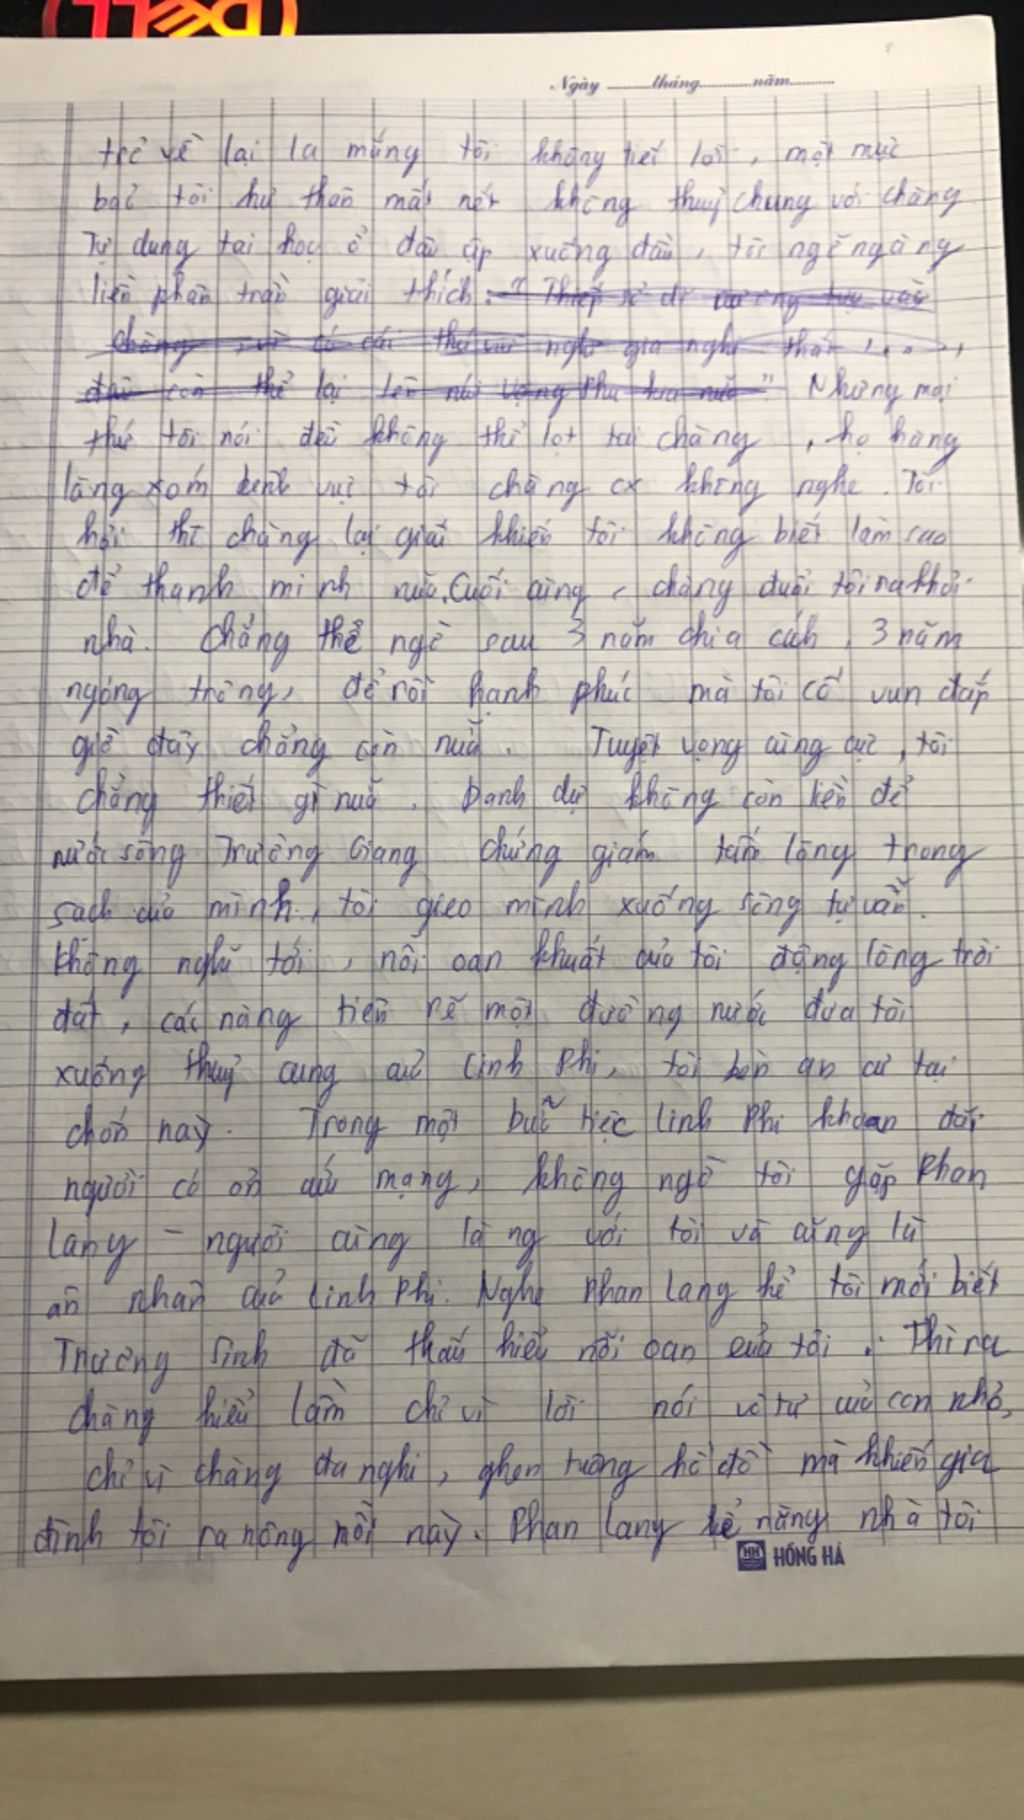 Ngày ............tháng............năm............
trở về lại la mắng tôi không tiếc lời, một mực
bảo tôi hư thân mất nết không thuỷ chung với chàng
Tự dưng tai hoạ ở đâu ập xuống đầu, tôi ngỡ ngàng
liền phân trần giải thích : " Thiếp sở dĩ nương tựa vào
chàng , vì có cái thú vui nghi gia nghi thất , . . . ,
đâu còn thể lại lên núi Vọng Phu kia nữa " Nhưng mọi
thứ tôi nói đều không thể lọt tai chàng , họ hàng
làng xóm bênh vực tôi chàng cx không nghe . Tôi
hỏi thì chàng lại giấu khiến tôi không biết làm sao
để thanh minh nữa. Cuối cùng , chàng đuổi tôi ra khỏi
nhà. Chẳng thể ngờ sau 3 năm chia cách , 3 năm
ngóng trông, để rồi hạnh phúc mà tôi cố vun đắp
giờ đây chẳng còn nữa . Tuyệt vọng cùng cực , tôi
chẳng thiết gì nữa . Danh dự không còn liền để
nước sông Trường Giang chứng giám tấm lòng trong
sạch của mình, tôi gieo mình xuống sông tự vẫn.
Không nghĩ tới , nỗi oan khuất của tôi động lòng trời
đất , các nàng tiên rẽ một đường nước đưa tôi
xuống thuỷ cung cuả Linh Phi, tôi bèn an cư tại
chốn này. Trong một buổi tiệc Linh Phi khoản đãi
người có ơn cứu mạng, không ngờ tôi gặp Phan
Lang – người cùng làng với tôi và cũng là
ân nhân của Linh Phi. Nghe Phan Lang kể tôi mới biết
Trương Sinh đã thấu hiểu nỗi oan của tôi . Thì ra
chàng hiểu lầm chỉ vì lời nói vô tư của con nhỏ,
chỉ vì chàng đa nghi , ghen tuông hồ đồ mà khiến gia
đình tôi ra nông nỗi này. Phan Lang kể rằng nhà tôi
HỒNG HÀ